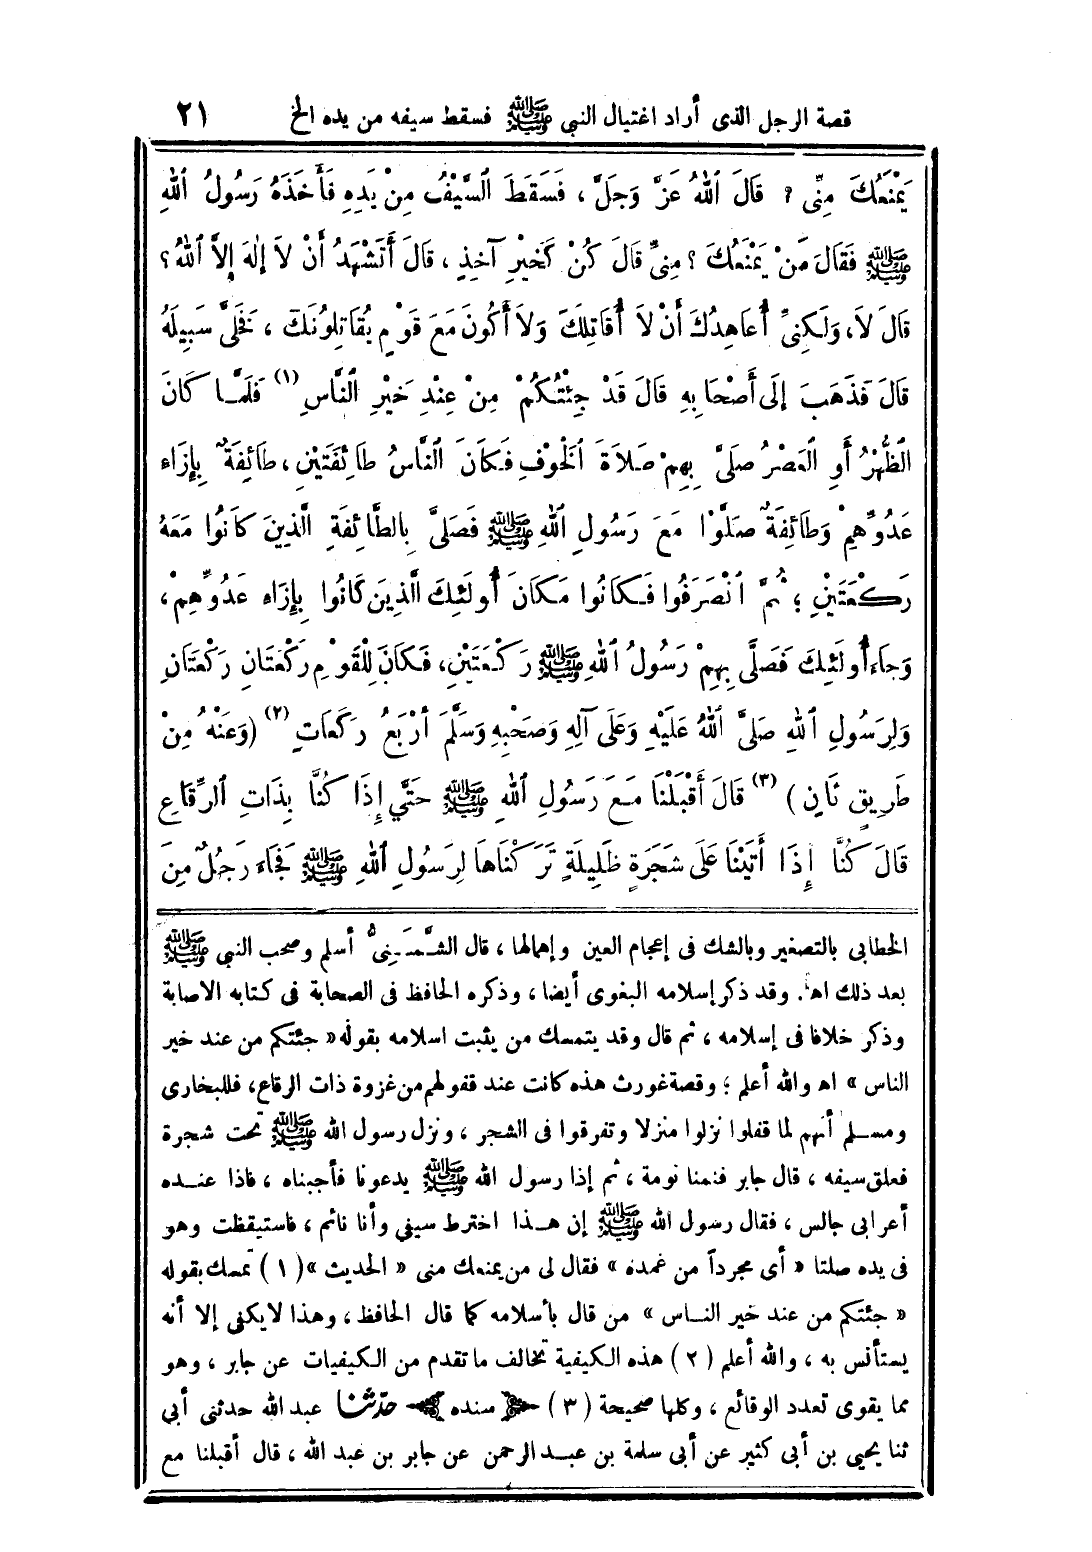 قصة الرجل الذى أراد اغتيال النبى ﷺ فسقط سيفه من يده الخ ٢١
يَمْنَعُكَ مِنِّى ؟ قَالَ اللهُ عَزَّ وَجَلَّ ، فَسَقَطَ السَّيْفُ مِنْ يَدِهِ فَأَخَذَهُ رَسُولُ اللهِ
ﷺ فَقَالَ مَنْ يَمْنَعُكَ ؟ مِنِّى قَالَ كُنْ كَخَيْرِ آخِذٍ ، قَالَ أَتَشْهَدُ أَنْ لاَ إِلٰهَ إِلاَّ اللهُ ؟
قَالَ لاَ، وَلَكِنِّى أُعَاهِدُكَ أَنْ لاَ أُقَاتِلَكَ وَلاَ أَكُونَ مَعَ قَوْمٍ يُقَاتِلُونَكَ ، فَخَلَّى سَبِيلَهُ
قَالَ فَذَهَبَ إِلَى أَصْحَابِهِ قَالَ قَدْ جِئْتُكُمْ مِنْ عِنْدِ خَيْرِ النَّاسِ (١) فَلَمَّا كَانَ
الظُّهْرُ أَوِ الْعَصْرُ صَلَّى بِهِمْ صَلاَةَ الْخَوْفِ فَكَانَ النَّاسُ طَائِفَتَيْنِ ، طَائِفَةٌ بِإِزَاءِ
عَدُوِّهِمْ وَطَائِفَةٌ صَلَّوْا مَعَ رَسُولِ اللهِ ﷺ فَصَلَّى بِالطَّائِفَةِ الَّذِينَ كَانُوا مَعَهُ
رَكْعَتَيْنِ ؛ ثُمَّ انْصَرَفُوا فَكَانُوا مَكَانَ أُولَئِكَ الَّذِينَ كَانُوا بِإِزَاءِ عَدُوِّهِمْ،
وَجَاءَ أُولَئِكَ فَصَلَّى بِهِمْ رَسُولُ اللهِ ﷺ رَكْعَتَيْنِ، فَكَانَ لِلْقَوْمِ رَكْعَتَانِ رَكْعَتَانِ
وَلِرَسُولِ اللهِ صَلَّى اللهُ عَلَيْهِ وَعَلَى آلِهِ وَصَحْبِهِ وَسَلَّمَ أَرْبَعُ رَكَعَاتٍ (٢) (وَعَنْهُ مِنْ
طَرِيقٍ ثَانٍ ) (٣) قَالَ أَقْبَلْنَا مَعَ رَسُولِ اللهِ ﷺ حَتَّى إِذَا كُنَّا بِذَاتِ الرِّقَاعِ
قَالَ كُنَّا إِذَا أَتَيْنَا عَلَى شَجَرَةٍ ظَلِيلَةٍ تَرَكْنَاهَا لِرَسُولِ اللهِ ﷺ فَجَاءَ رَجُلٌ مِنَ
الخطابى بالتصغير وبالشك فى إعجام العين وإهمالها ، قال الشُّمُنِّىُّ أسلم وصحب النبى ﷺ
بعد ذلك اهـ. وقد ذكر إسلامه البغوى أيضا ، وذكره الحافظ فى الصحابة فى كتابه الاصابة
وذكر خلافا فى إسلامه ، ثم قال وقد يتمسك من يثبت اسلامه بقوله « جئتكم من عند خير
الناس » اهـ والله أعلم ؛ وقصة غورث هذه كانت عند قفولهم من غزوة ذات الرقاع، فللبخارى
ومسلم أنهم لما قفلوا نزلوا منزلا وتفرقوا فى الشجر ، ونزل رسول الله ﷺ تحت شجرة
فعلق سيفه ، قال جابر فنمنا نومة ، ثم إذا رسول الله ﷺ يدعونا فأجبناه ، فاذا عنده
أعرابى جالس ، فقال رسول الله ﷺ إن هذا اخترط سيفى وأنا نائم ، فاستيقظت وهو
فى يده صلتا « أى مجرداً من غمده » فقال لى من يمنعك منى « الحديث » (١) تمسك بقوله
« جئتكم من عند خير الناس » من قال بأسلامه كما قال الحافظ ، وهذا لايكفى إلا أنه
يستأنس به ، والله أعلم (٢) هذه الكيفية تخالف ما تقدم من الكيفيات عن جابر ، وهو
مما يقوى تعدد الوقائع ، وكلها صحيحة (٣) سنده حدّثنا عبد الله حدثنى أبى
ثنا يحيى بن أبى كثير عن أبى سلمة بن عبد الرحمن عن جابر بن عبد الله ، قال أقبلنا مع